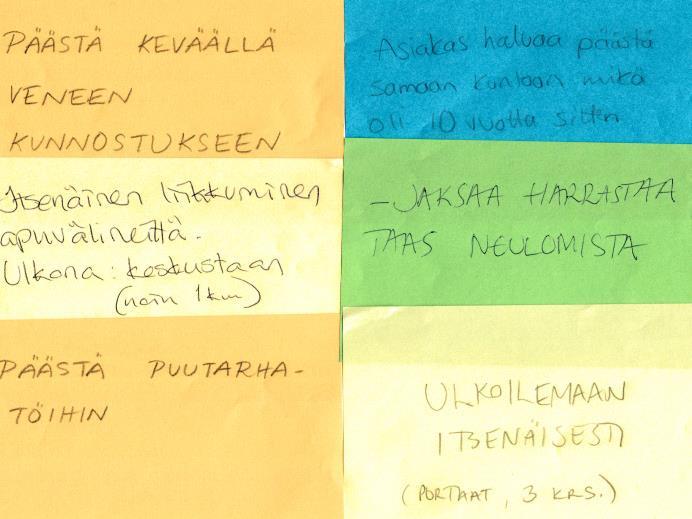 PÄÄSTÄ KEVÄÄLLÄ
VENEEN
KUNNOSTUKSEEN
Itsenäinen liikkuminen
apuvälineittä.
Ulkona: keskustaan
(noin 1km)
PÄÄSTÄ PUUTARHA-
TÖIHIN
Asiakas haluaa päästä
samaan kuntoon mikä
oli 10 vuotta sitten
- JAKSAA HARRASTAA
TAAS NEULOMISTA
ULKOILEMAAN
ITSENÄISESTI
(PORTAAT, 3 KRS.)